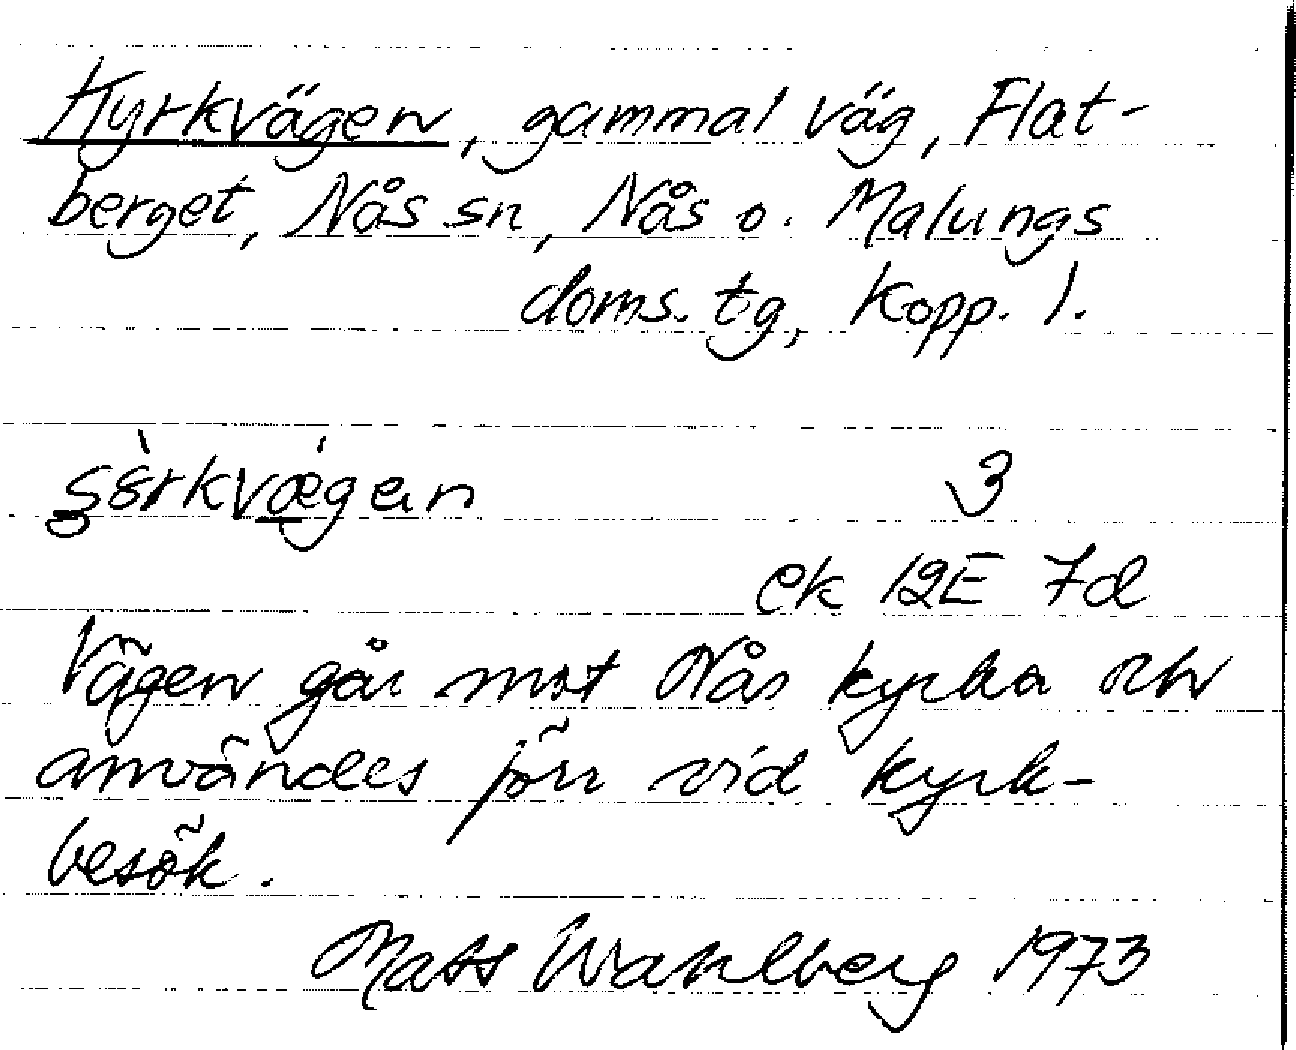 Kyrkvägen, gammal väg, Flat-
berget, Nås sn, Nås o. Malungs
doms. tg, Kopp. l.
3
ek 12E 7d
Vägen går mot Nås kyrka och
användes förr vid kyrk-
besök.
Mats Wahlberg 1973